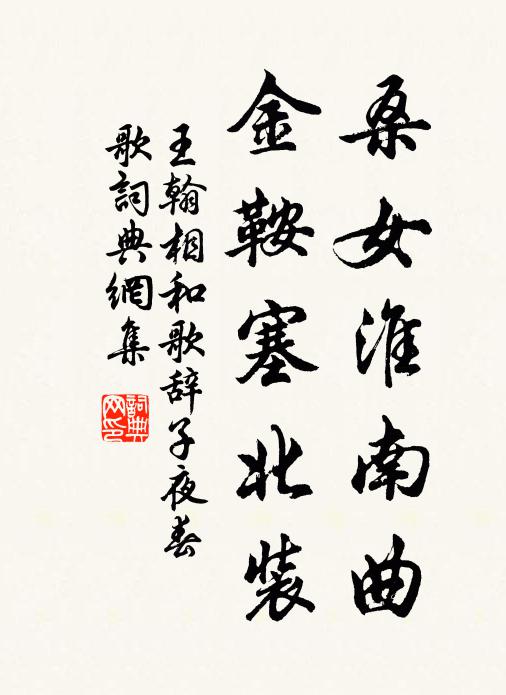 桑女淮南曲
金鞍塞北裝
王翰相和歌辞子夜春
歌詞典網集
詞典网印